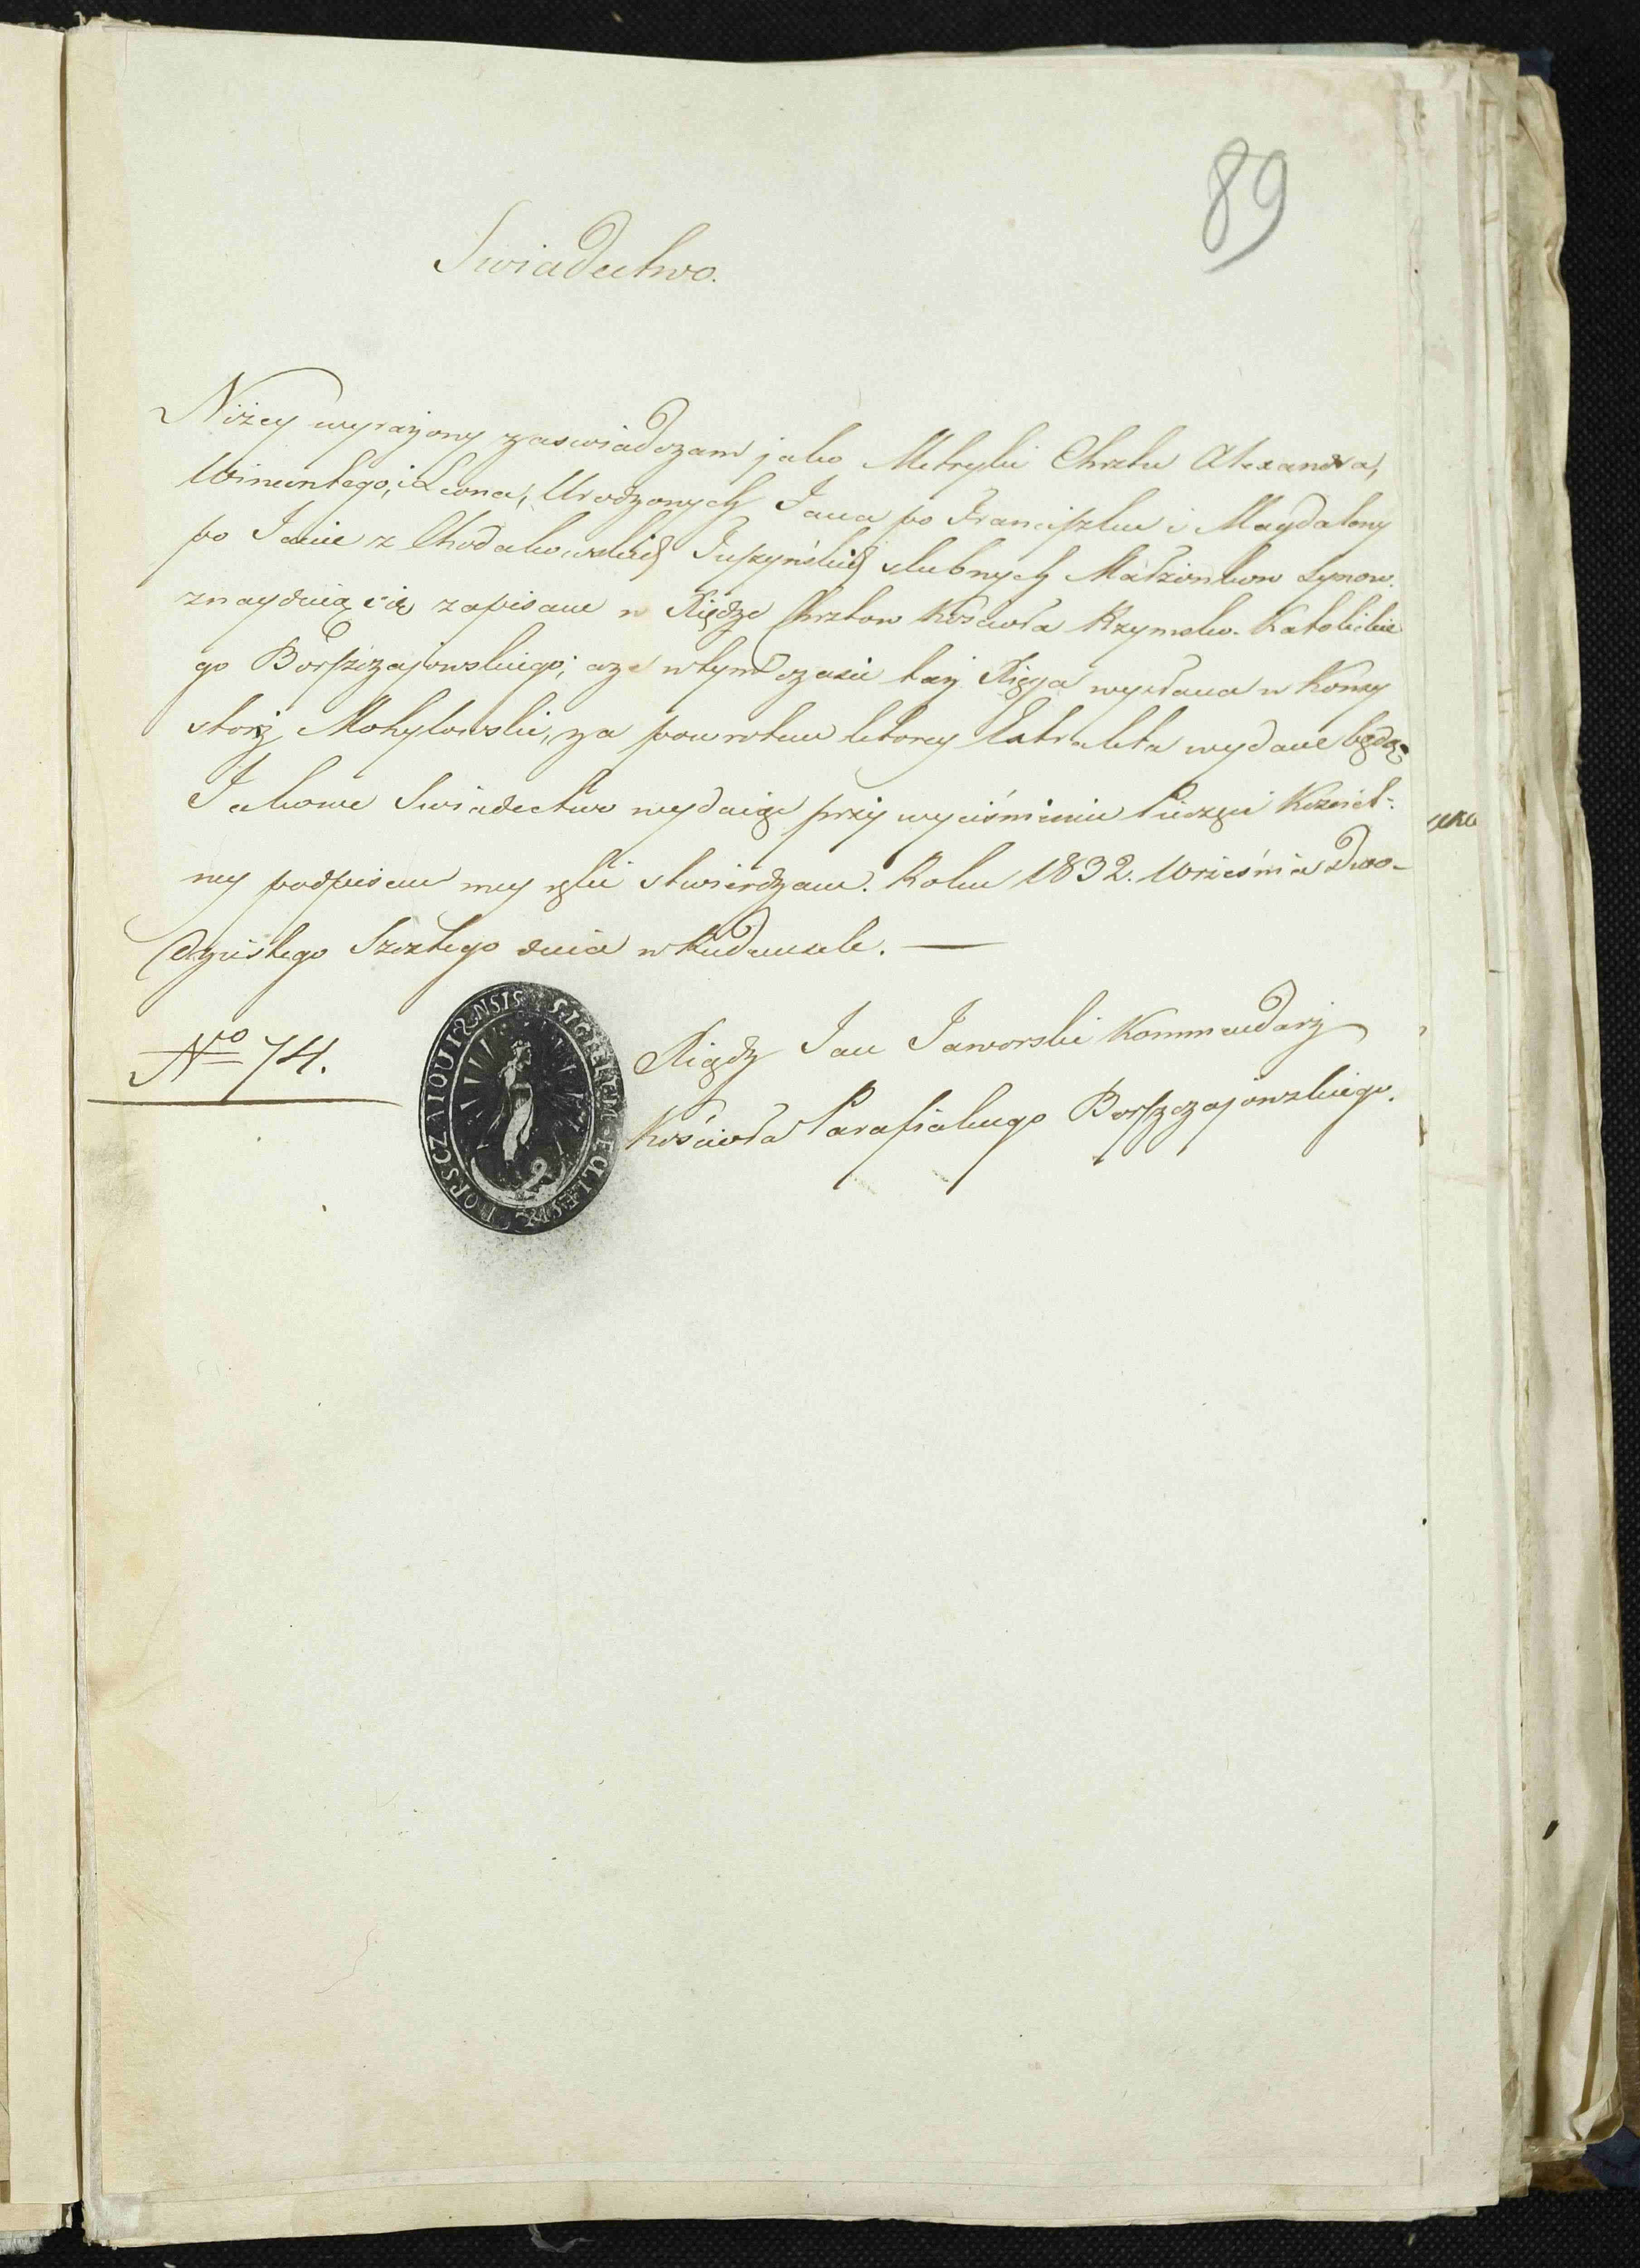 89
Swiadectwo.
Niżey wyrażony zaswiadczam jako Metryki Chrztu Alexandra,
Wincentego, i Leona, Urodzonych Jana po Franciszku i Magdaleny
po Janie z Chodakowskich Juszyńskich slubnych Małżonkow Synow.
znayduią się zapisane w Xiędze Chrztow Kościoła Rzymsko-Katolickie
go Borszczajowskiego; a że w tym czasie taż Xięga wysłana w Konsy
storz Mohylowski, za powrotem ktorey Extrakta wydane będą.
Jakowe Swiadectwo wydaiąc przy wyciśnieniu Pieczęci Koscieł-
ney podpisem mey ręki stwierdzam. Roku 1832. Wrzesnia Dwo-
dziestego Szóstego dnia w Rudemsele. —
No 74.
Xiądz Jan Jaworski Kommendarz
Kościoła Parafialnego Borszczajowskiego.
SIGILLUM ECLESIÆ BORSCZAIOUIENSIS